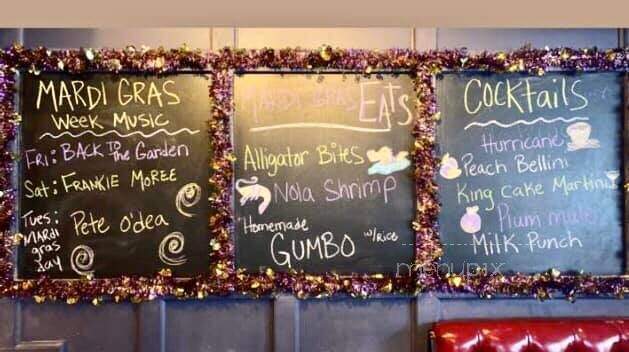 MARDI GRAS
Week Music
Fri: BACK TO the Garden
Sat: FRANKIE MOREE
Tues: MARDI gras day Pete O'dea
MARDI GRAS EATS
Alligator Bites
Nola Shrimp
"Homemade
GUMBO w/Rice
COCKtails
Hurricane
Peach Bellini
King Cake Martini
Plum mule
Milk Punch
menupix